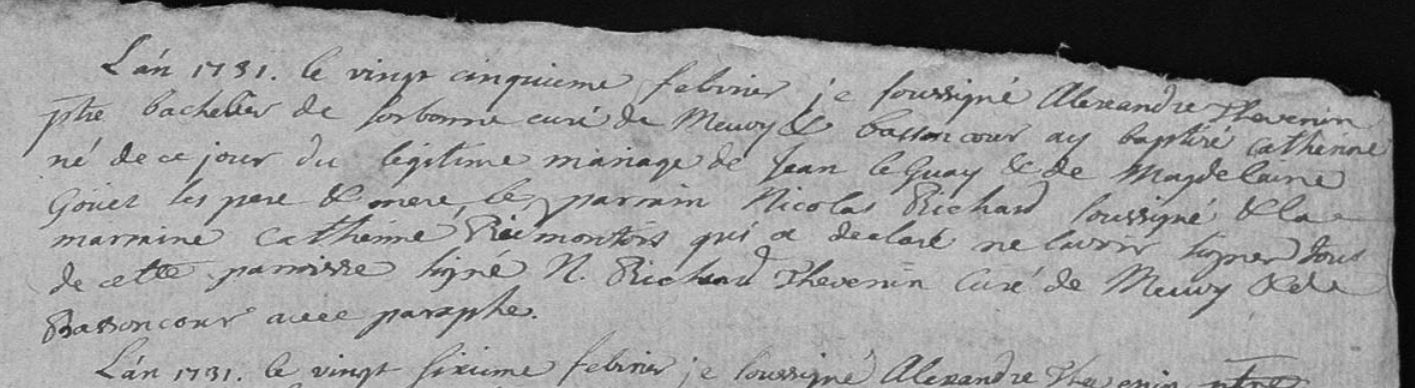 L'an 1731. le vingt cinquieme febvrier je soussigné Alexandre Thevenin
ptre bachelier de sorbonne curé de Meuvy & bassoncour ay baptisé catherine
né de ce jour du légitime mariage de Jean le Guay & de Magdelaine
Gouet ses pere & mere, le parrain Nicolas Richard soussigné & la
marraine catherine Riemontois qui a declaré ne savoir signer tous
de cette parroisse signé N. Richard Thevenin Curé de Meuvy & de
Bassoncour avec paraphe.
L'an 1731. le vingt sixieme febvrier je soussigné Alexandre Thevenin ptre